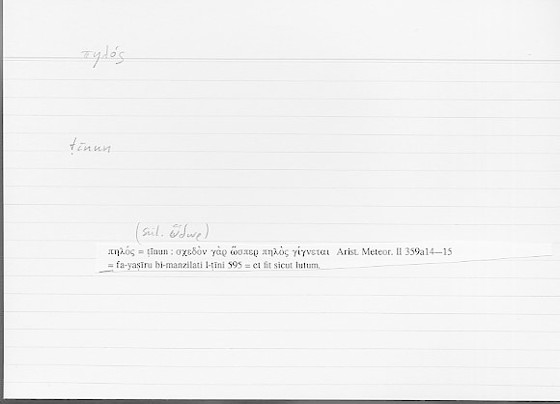 πηλός
ṭīnun
(scil. ὕδωρ)
πηλός = ṭīnun : σχεδὸν γὰρ ὥσπερ πηλὸς γίγνεται Arist. Meteor. II 359a14—15
= fa-yasīru bi-manzilati l-tīni 595 = et fit sicut lutum.